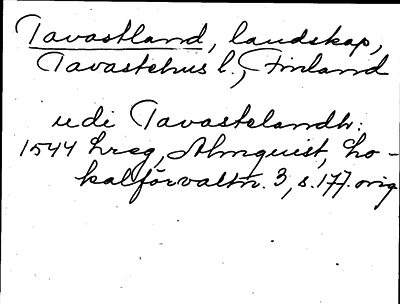 Tavastland, landskap,
Tavastehus l., Finland
udi Tavastelandh:
1544 Lreg, Almquist, Lo-
kalförvaltn. 3, s. 177. orig